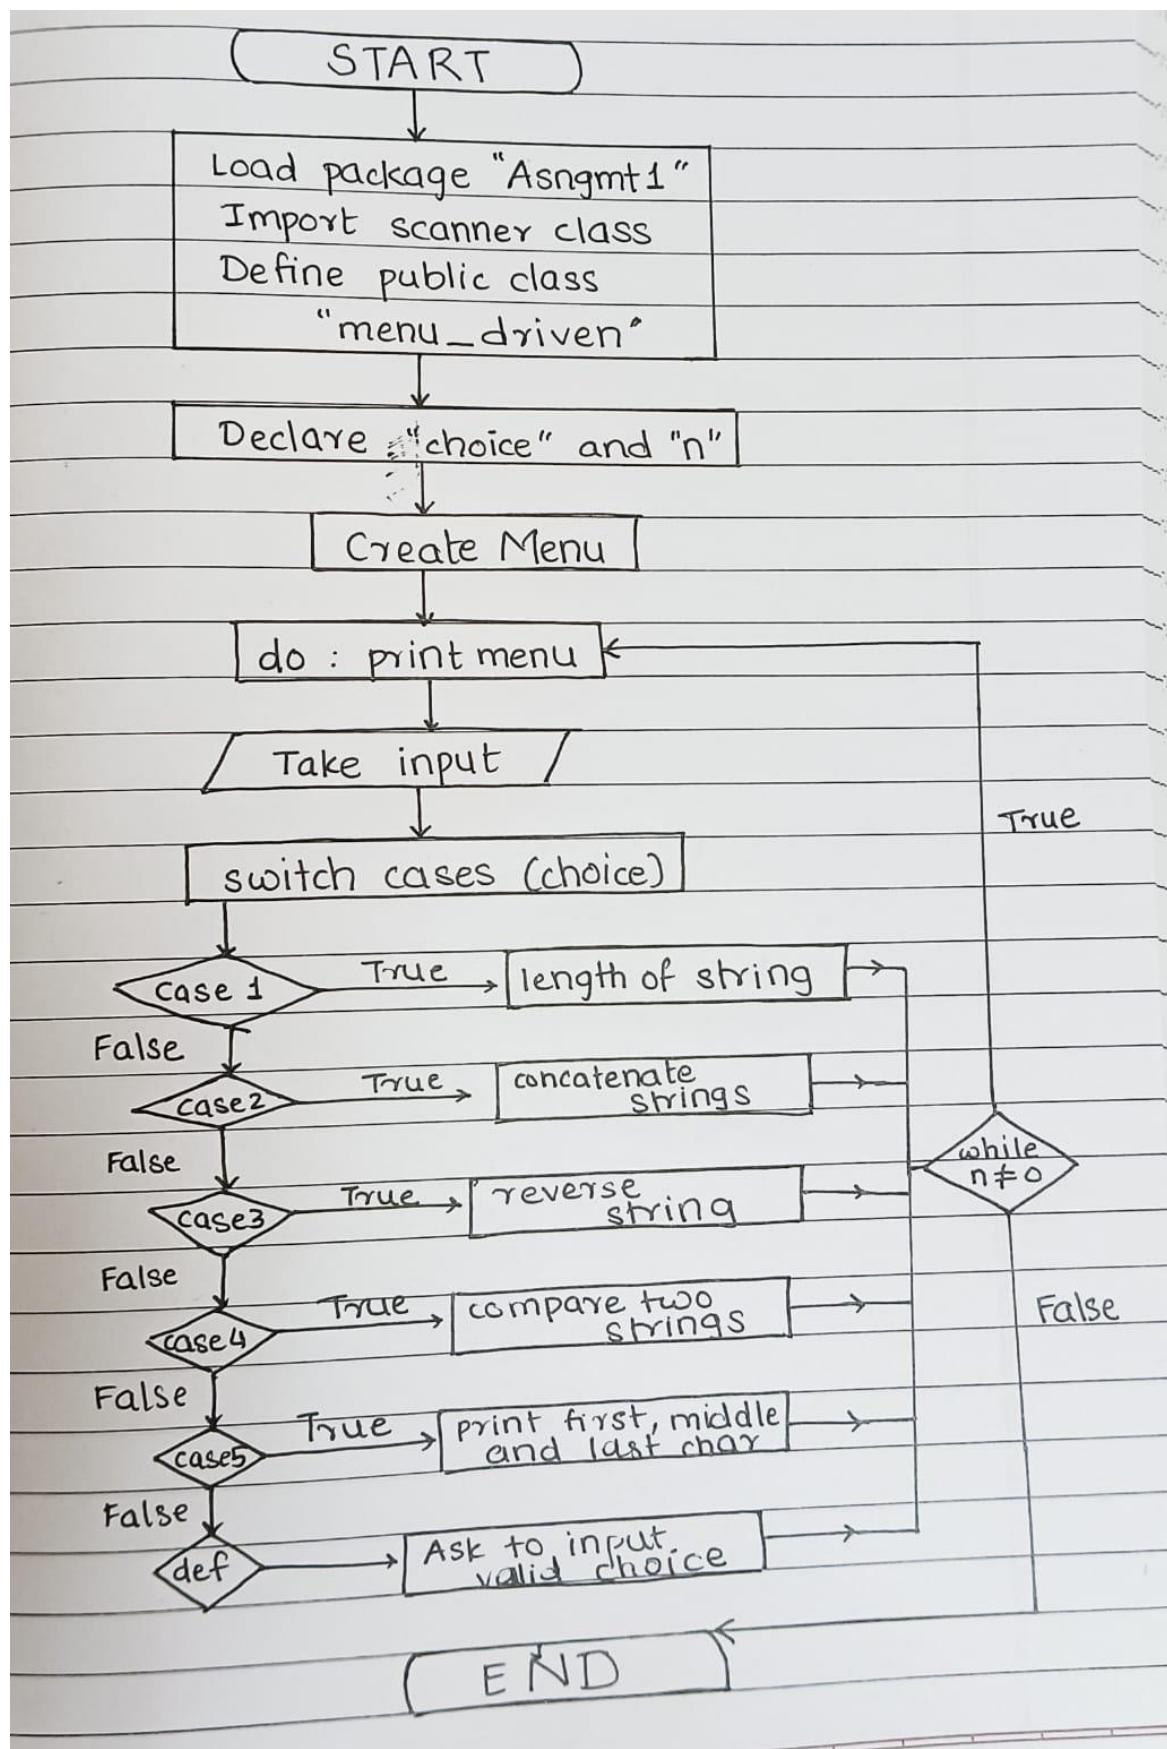 START
Load package "Asngmt1"
Import scanner class
Define public class
"menu_driven"
Declare "choice" and "n"
Create Menu
do : print menu
Take input
True
switch cases (choice)
case 1
True
length of string
False
case2
True
concatenate
strings
while
n≠0
False
case3
True
reverse
string
False
case4
True
compare two
strings
False
False
case5
True
print first, middle
and last char
False
def
Ask to input
valid choice
END